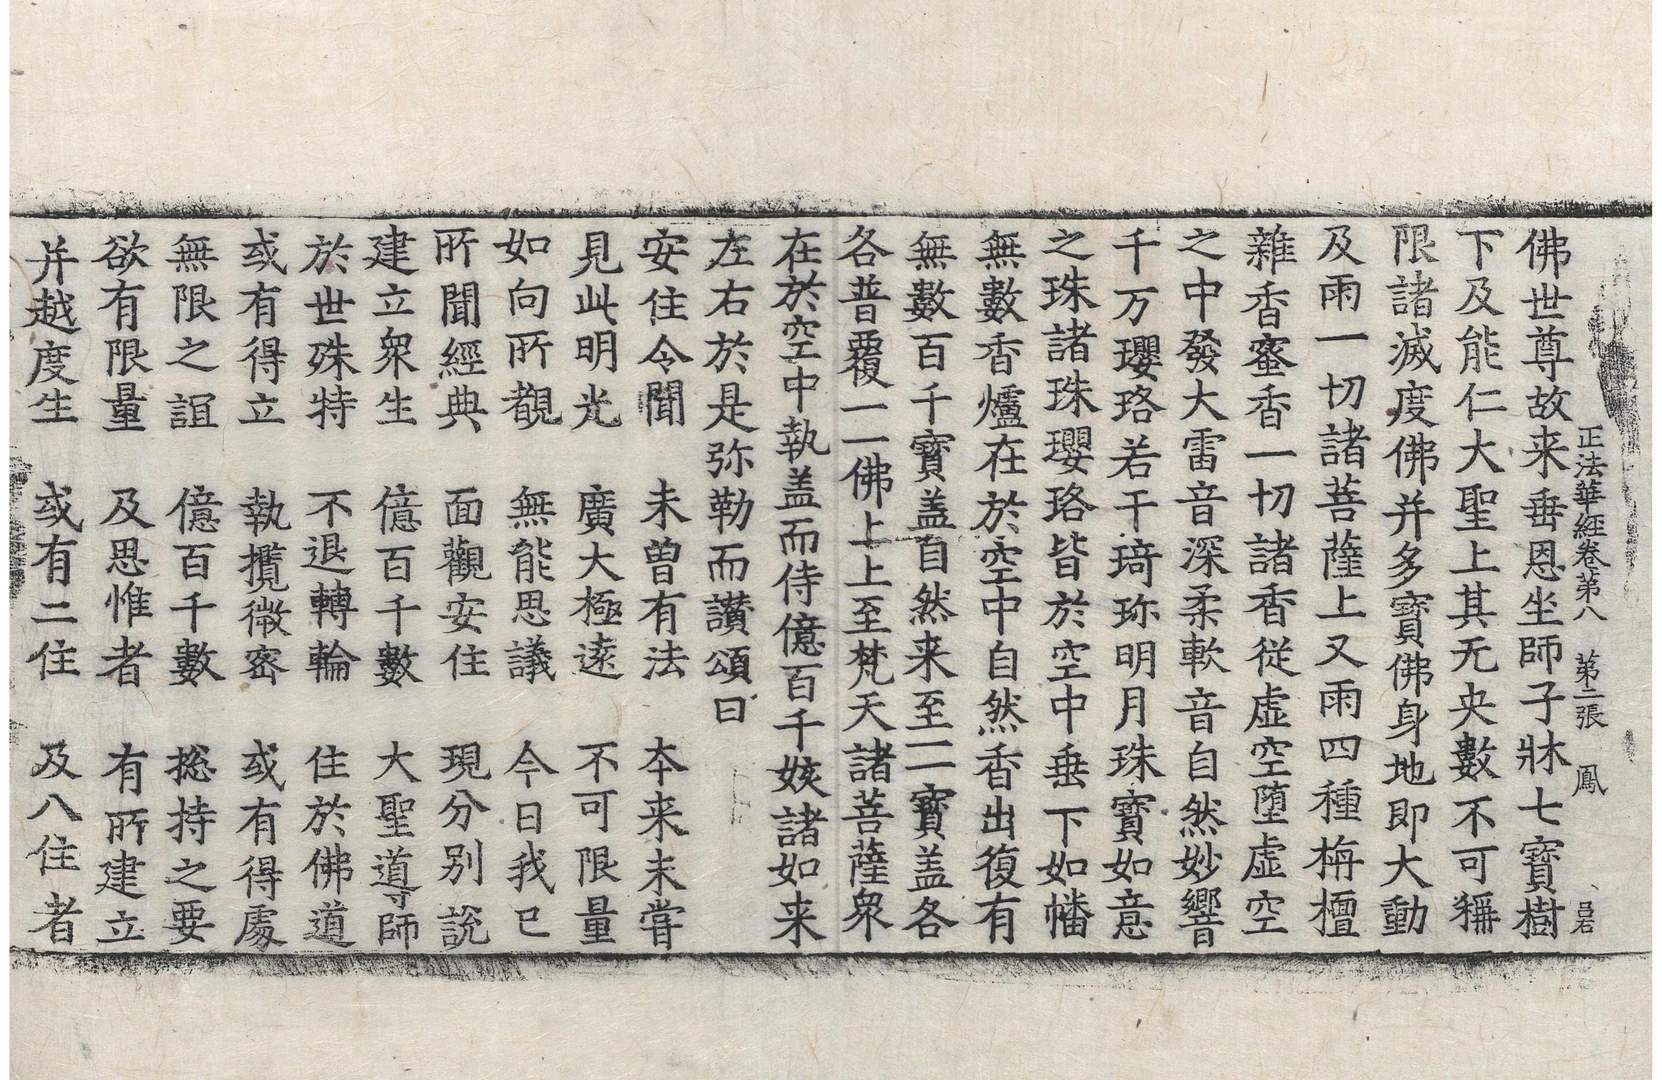 正法華經卷第八 第二張 鳳 呂石
佛世尊故来垂恩坐師子牀七寶樹
下及能仁大聖上其无央數不可稱
限諸滅度佛并多寶佛身地即大動
及雨一切諸菩薩上又雨四種栴檀
雜香蜜香一切諸香從虛空墮虛空
之中發大雷音深柔軟音自然妙響
千万瓔珞若干琦珎明月珠寶如意
之珠諸珠瓔珞皆於空中垂下如幡
無數香爐在於空中自然香出復有
無數百千寶盖自然来至一一寶盖各
各普覆一一佛上上至梵天諸菩薩衆
在於空中執盖而侍億百千姟諸如来
左右於是弥勒而讃頌曰
安住令聞 未曾有法 本来未甞
見此明光 廣大極遠 不可限量
如向所觀 無能思議 今日我已
所聞經典 面觀安住 現分別說
建立衆生 億百千數 大聖導師
於世殊特 不退轉輪 住於佛道
或有得立 執攬微密 或有得處
無限之誼 億百千數 捴持之要
欲有限量 及思惟者 有所建立
并越度生 或有二住 及八住者